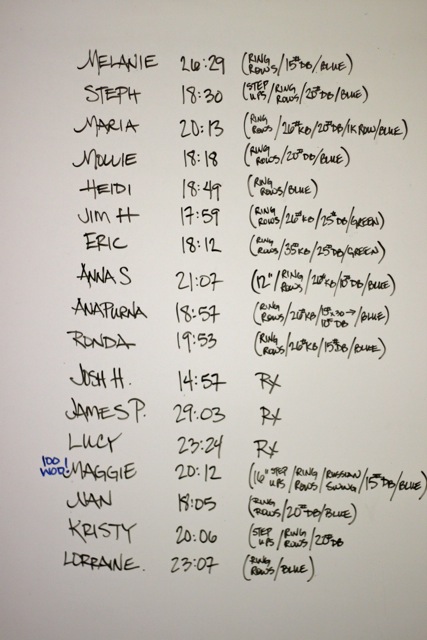 MELANIE 26:29 (RING ROWS/15# DB/BLUE)
STEPH 18:30 (STEP UPS/RING ROWS/20# DB/BLUE)
MARIA 20:13 (RING ROWS/26# KB/20# DB/1K ROW/BLUE)
MOLLIE 18:18 (RING ROWS/20# DB/BLUE)
HEIDI 18:49 (RING ROWS/BLUE)
JIM H 17:59 (RING ROWS/26# KB/25# DB/GREEN)
ERIC 18:12 (RING ROWS/35# KB/25# DB/GREEN)
ANNA S 21:07 (12"/RING ROWS/26# KB/10# DB/BLUE)
ANAPURNA 18:57 (RING ROWS/26# KB/15# x30 → 10# DB/BLUE)
RONDA 19:53 (RING ROWS/26# KB/15# DB/BLUE)
JOSH H. 14:57 RX
JAMES P. 29:03 RX
LUCY 23:24 RX
100 WOD! MAGGIE 20:12 (16" STEP UPS/RING ROWS/RUSSIAN SWING/15# DB/BLUE)
NAN 18:05 (RING ROWS/20# DB/BLUE)
KRISTY 20:06 (STEP UPS/RING ROWS/20# DB
LORRAINE. 23:07 (RING ROWS/BLUE)